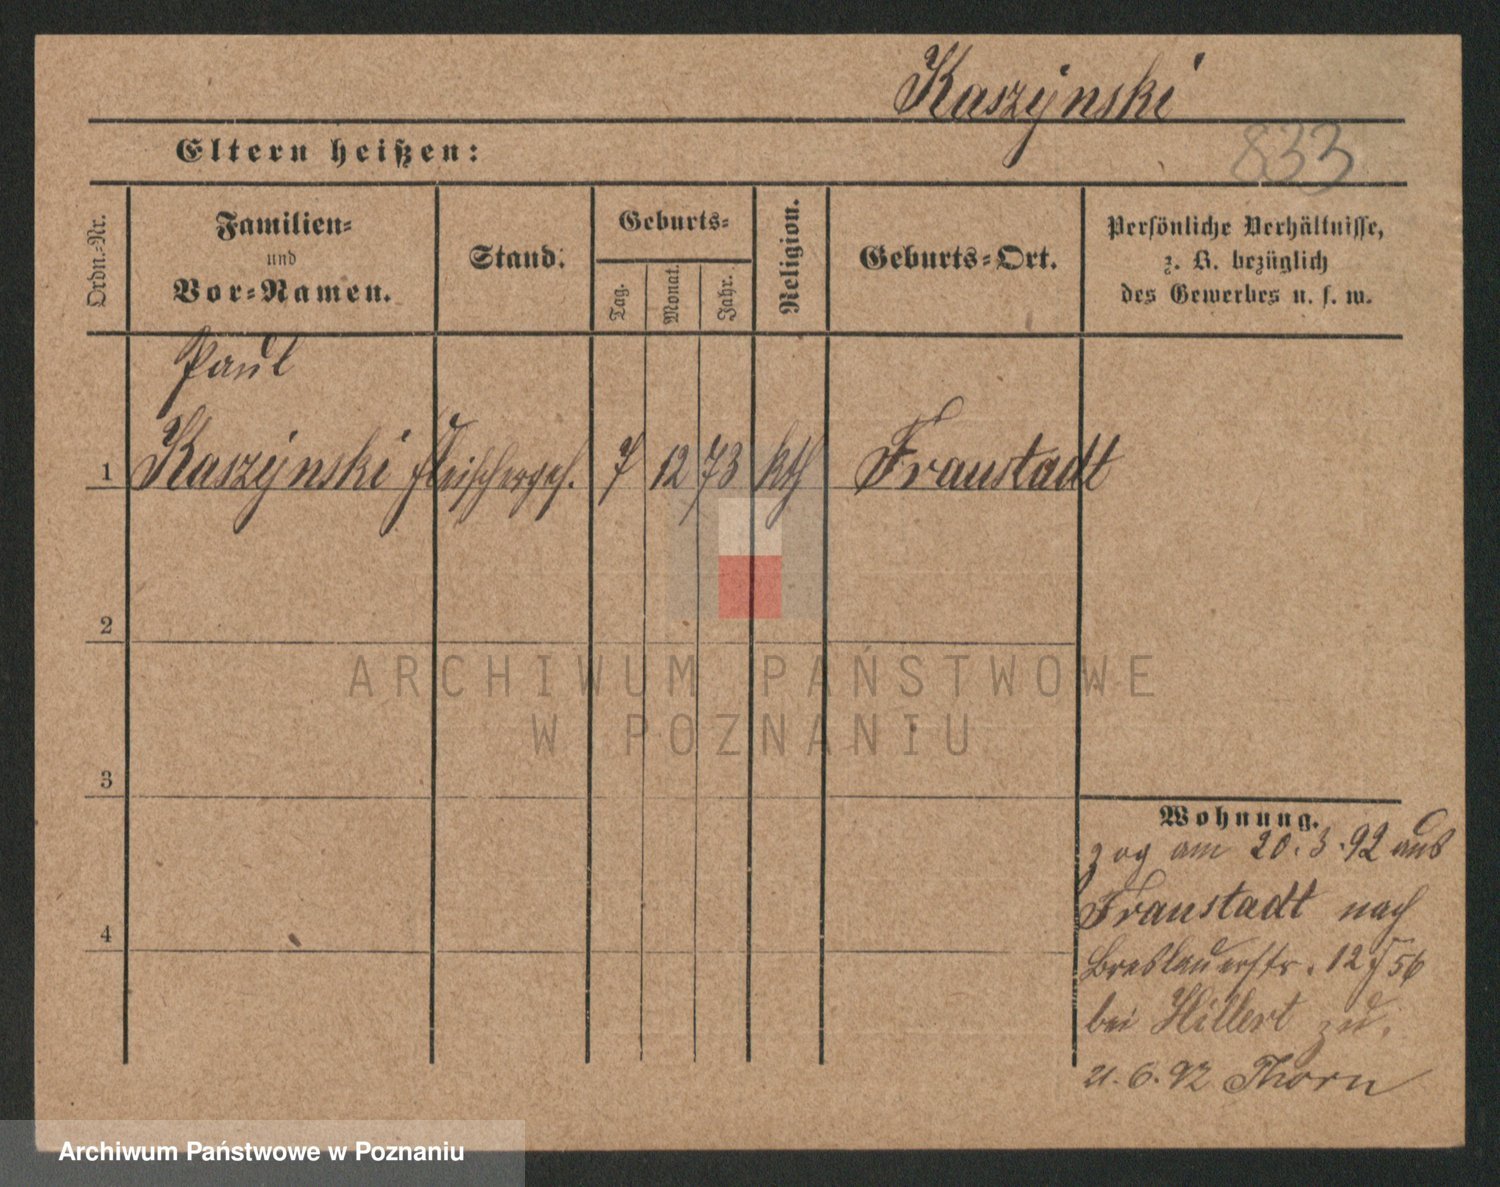 Kaszynski
833
Eltern heißen:
Ordn.-Nr.
Familien-
und
Vor-Namen.
Stand.
Geburts-
Tag.
Monat.
Jahr.
Religion.
Geburts-Ort.
Persönliche Verhältnisse,
z. B. bezüglich
des Gewerbes u. s. w.
Paul
1 Kaszynski Fleischerges. 7 12 73 kth Fraustadt
2
3
4
Wohnung.
zog am 20.3.92 aus
Fraustadt nach
Breslauerstr. 12
bei Hillert zu.
21.6.92 Thorn
ARCHIWUM PAŃSTWOWE
W POZNANIU
Archiwum Państwowe w Poznaniu